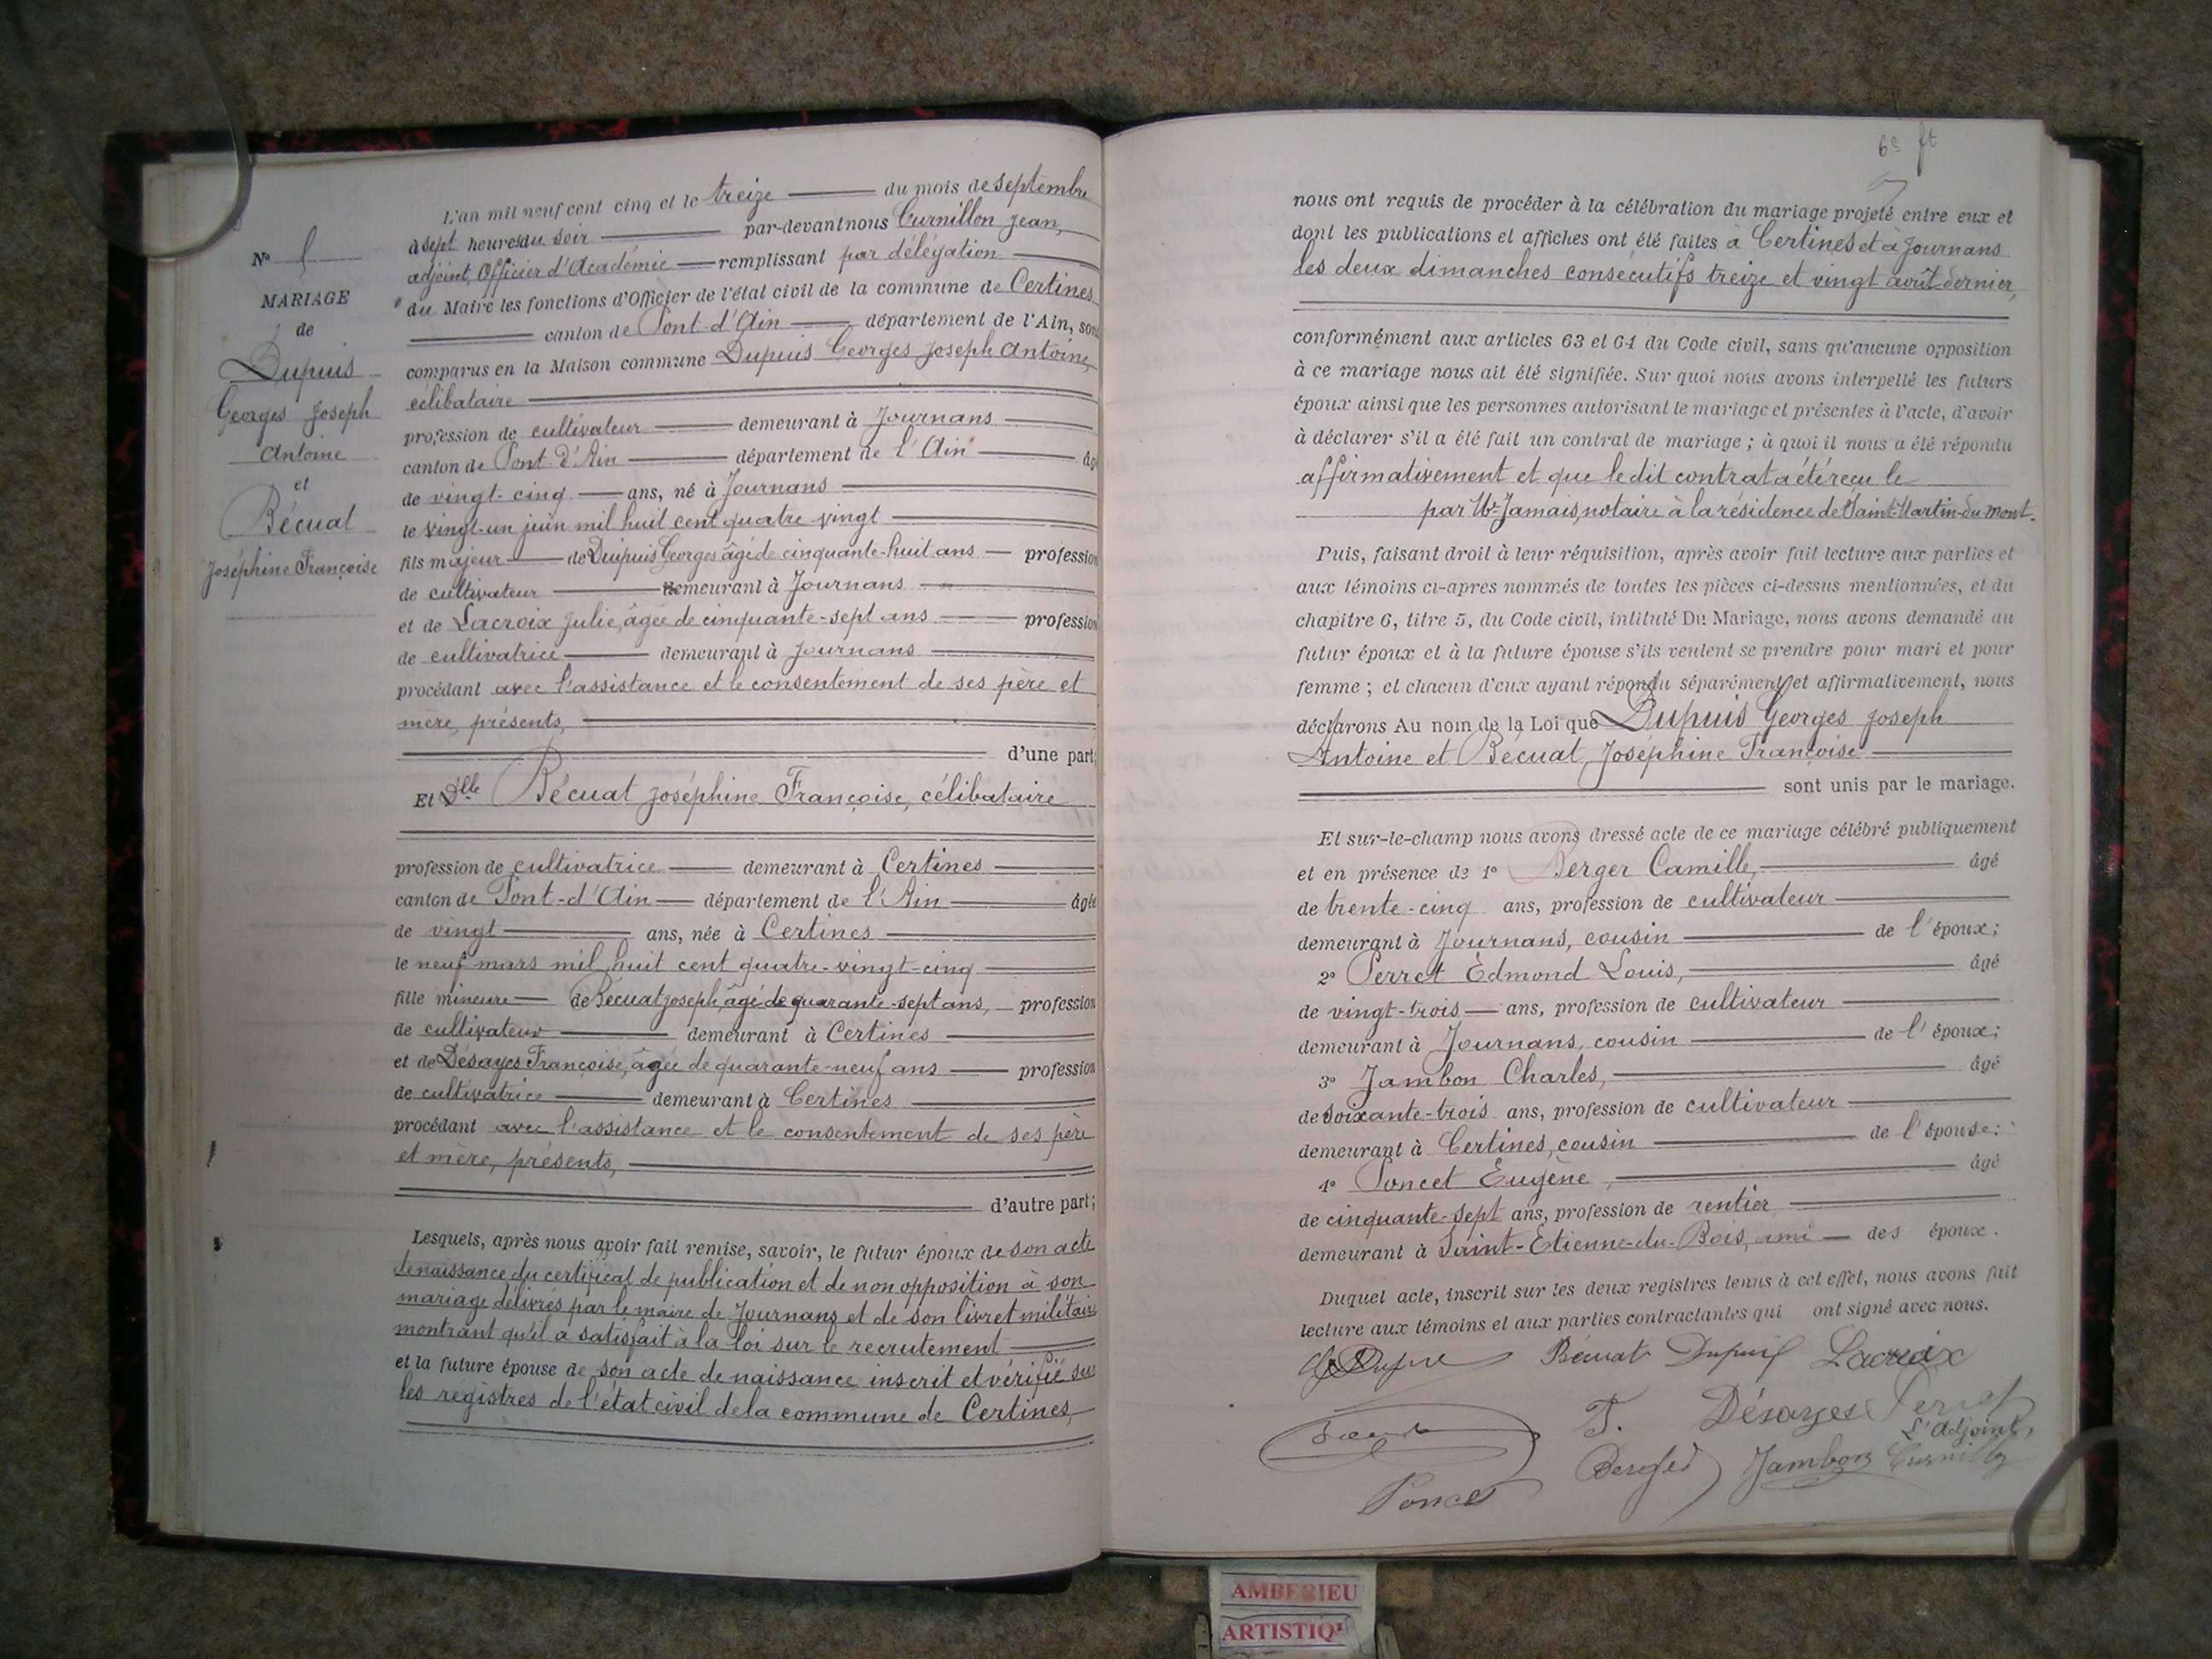 L'an mil neuf cent cinq et le treize du mois de septembre
à sept heures du soir par-devant nous Curnillon Jean,
adjoint, Officier d'Académie remplissant par délégation
du Maire les fonctions d'Officier de l'état civil de la commune de Certines
canton de Pont-d'Ain département de l'Ain, sont
comparus en la Maison commune Dupuis Georges Joseph Antoine,
célibataire
profession de cultivateur demeurant à Journans
canton de Pont-d'Ain département de l'Ain âgé
de vingt-cinq ans, né à Journans
le vingt-un juin mil huit cent quatre vingt
fils majeur de Dupuis Georges âgé de cinquante-huit ans profession
de cultivateur demeurant à Journans
et de Lacroix Julie, âgée de cinquante-sept ans profession
de cultivatrice demeurant à Journans
procédant avec l'assistance et le consentement de ses père et
mère, présents,
d'une part;
Et Dlle Bécuat Joséphine Françoise, célibataire
profession de cultivatrice demeurant à Certines
canton de Pont-d'Ain département de l'Ain âgée
de vingt ans, née à Certines
le neuf mars mil huit cent quatre-vingt-cinq
fille mineure de Bécuat Joseph, âgé de quarante-sept ans, profession
de cultivateur demeurant à Certines
et de Désayes Françoise, âgée de quarante-neuf ans profession
de cultivatrice demeurant à Certines
procédant avec l'assistance et le consentement de ses père
et mère, présents,
d'autre part;
Lesquels, après nous avoir fait remise, savoir, le futur époux de son acte
de naissance du certificat de publication et de non opposition à son
mariage délivrés par le maire de Journans et de son livret militaire
montrant qu'il a satisfait à la loi sur le recrutement
et la future épouse de son acte de naissance inscrit et vérifié sur
les registres de l'état civil de la commune de Certines,
N° 
MARIAGE
de
Dupuis
Georges Joseph
Antoine
et
Bécuat
Joséphine Françoise
6e ft
nous ont requis de procéder à la célébration du mariage projeté entre eux et
dont les publications et affiches ont été faites à Certines et à Journans
les deux dimanches consécutifs treize et vingt août dernier,
conformément aux articles 63 et 64 du Code civil, sans qu'aucune opposition
à ce mariage nous ait été signifiée. Sur quoi nous avons interpellé les futurs
époux ainsi que les personnes autorisant le mariage et présentes à l'acte, d'avoir
à déclarer s'il a été fait un contrat de mariage ; à quoi il nous a été répondu
affirmativement et que le dit contrat a été reçu le
par Me Jamais, notaire à la résidence de Saint-Martin-du-Mont.
Puis, faisant droit à leur réquisition, après avoir fait lecture aux parties et
aux témoins ci-après nommés de toutes les pièces ci-dessus mentionnées, et du
chapitre 6, titre 5, du Code civil, intitulé Du Mariage, nous avons demandé au
futur époux et à la future épouse s'ils veulent se prendre pour mari et pour
femme ; et chacun d'eux ayant répondu séparément et affirmativement, nous
déclarons Au nom de la Loi que Dupuis Georges Joseph
Antoine et Bécuat, Joséphine Françoise
sont unis par le mariage.
Et sur-le-champ nous avons dressé acte de ce mariage célébré publiquement
et en présence de 1° Berger Camille, âgé
de trente-cinq ans, profession de cultivateur
demeurant à Journans, cousin de l'époux;
2° Perret Edmond Louis, âgé
de vingt-trois ans, profession de cultivateur
demeurant à Journans, cousin de l'époux;
3° Jambon Charles, âgé
de soixante-trois ans, profession de cultivateur
demeurant à Certines, cousin de l'épouse;
4° Poncet Eugène, âgé
de cinquante-sept ans, profession de rentier
demeurant à Saint-Etienne-du-Bois, ami des époux.
Duquel acte, inscrit sur les deux registres tenus à cet effet, nous avons fait
lecture aux témoins et aux parties contractantes qui ont signé avec nous.
Bécuat Dupuis Lacroix
F. Désayes Perret
L'Adjoint,
Berger Jambon Curnillon
Poncet
AMBERIEU
ARTISTIQ